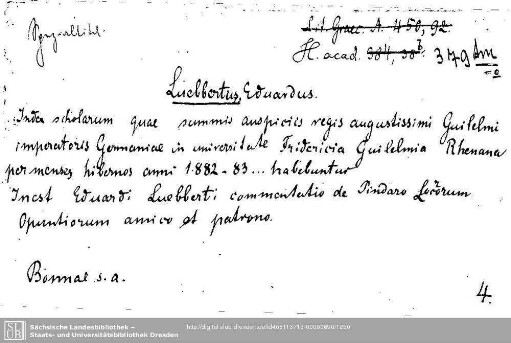 Spezialtitel.
Lit. Graec. A. 450, 92.
H. acad. 384, 38 b 379 dm
=o
Luebbertus, Eduardus.
Index scholarum quae summis auspiciis regis augustissimi Guilelmi
imperatoris Germaniae in universitate Fridericia Guilelmia Rhenana
per menses hibernos anni 1882-83... habebuntur
Inest Eduardi Luebberti commentatio de Pindaro Locrorum
Opuntiorum amico et patrono.
Bonnae s. a.
4.
SLUB
Sächsische Landesbibliothek –
Staats- und Universitätsbibliothek Dresden